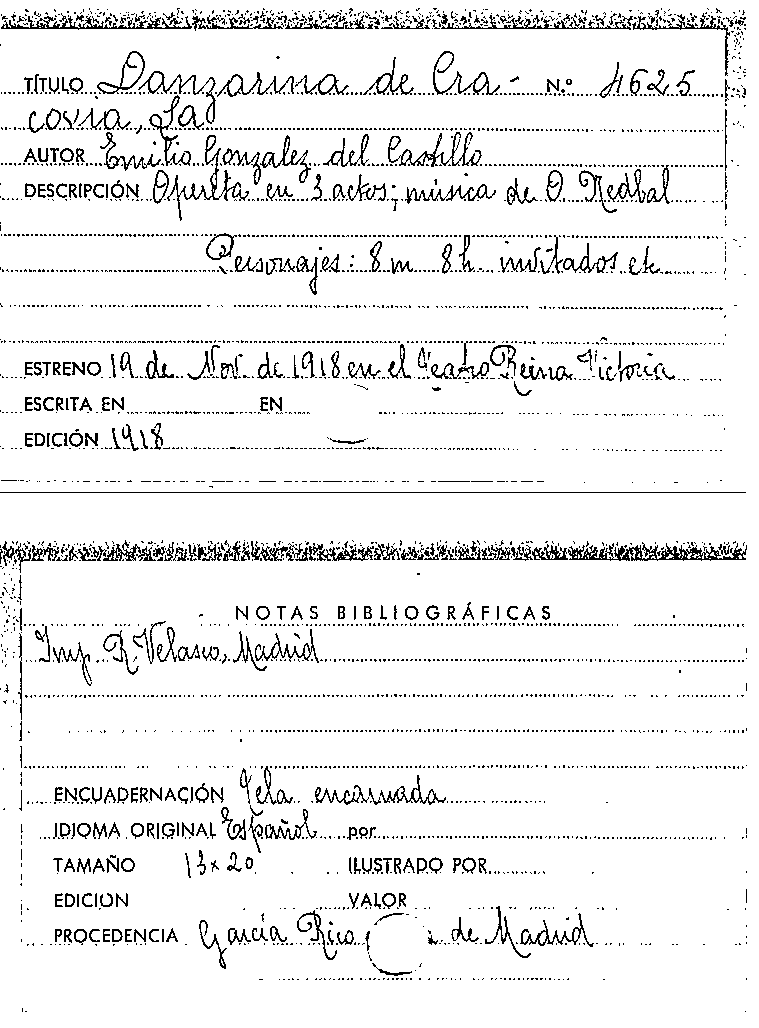 TÍTULO Danzarina de Cra- N.º 4625
covia, La
AUTOR Emilio Gonzalez del Castillo
DESCRIPCIÓN Opereta en 3 actos; música de O. Nedbal
Personajes: 8 m 8 h. invitados etc
ESTRENO 19 de Nov. de 1918 en el Teatro Reina Victoria
ESCRITA EN EN
EDICIÓN 1918
NOTAS BIBLIOGRÁFICAS
Imp. R. Velasco, Madrid
ENCUADERNACIÓN Tela encarnada
IDIOMA ORIGINAL Español por
TAMAÑO 13x20 ILUSTRADO POR
EDICION VALOR
PROCEDENCIA García Rico de Madrid